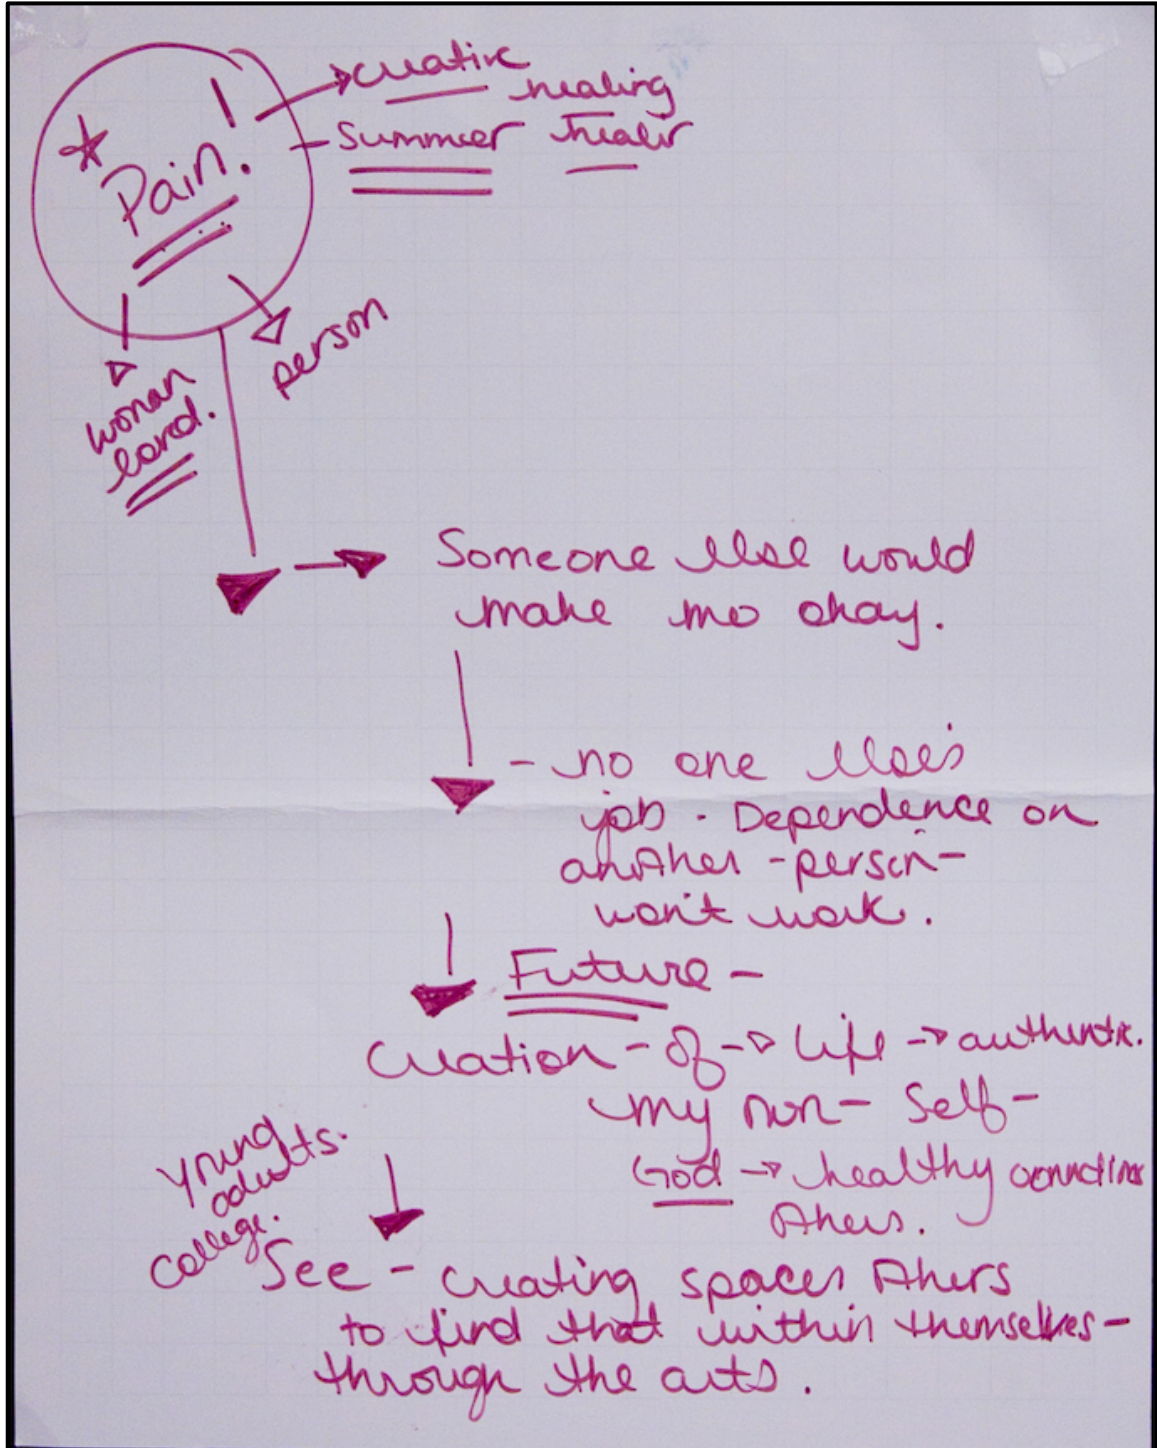 creative
healing
* Pain.
Summer theater
person
woman
loved.
Someone else would
make me okay.
- no one else's
job. Dependence on
another - person -
won't work.
Future -
Creation - of → Life → authentic.
my own - Self -
God → healthy connections
others.
young
adults.
college.
See - creating spaces others
to find that within themselves -
through the arts.